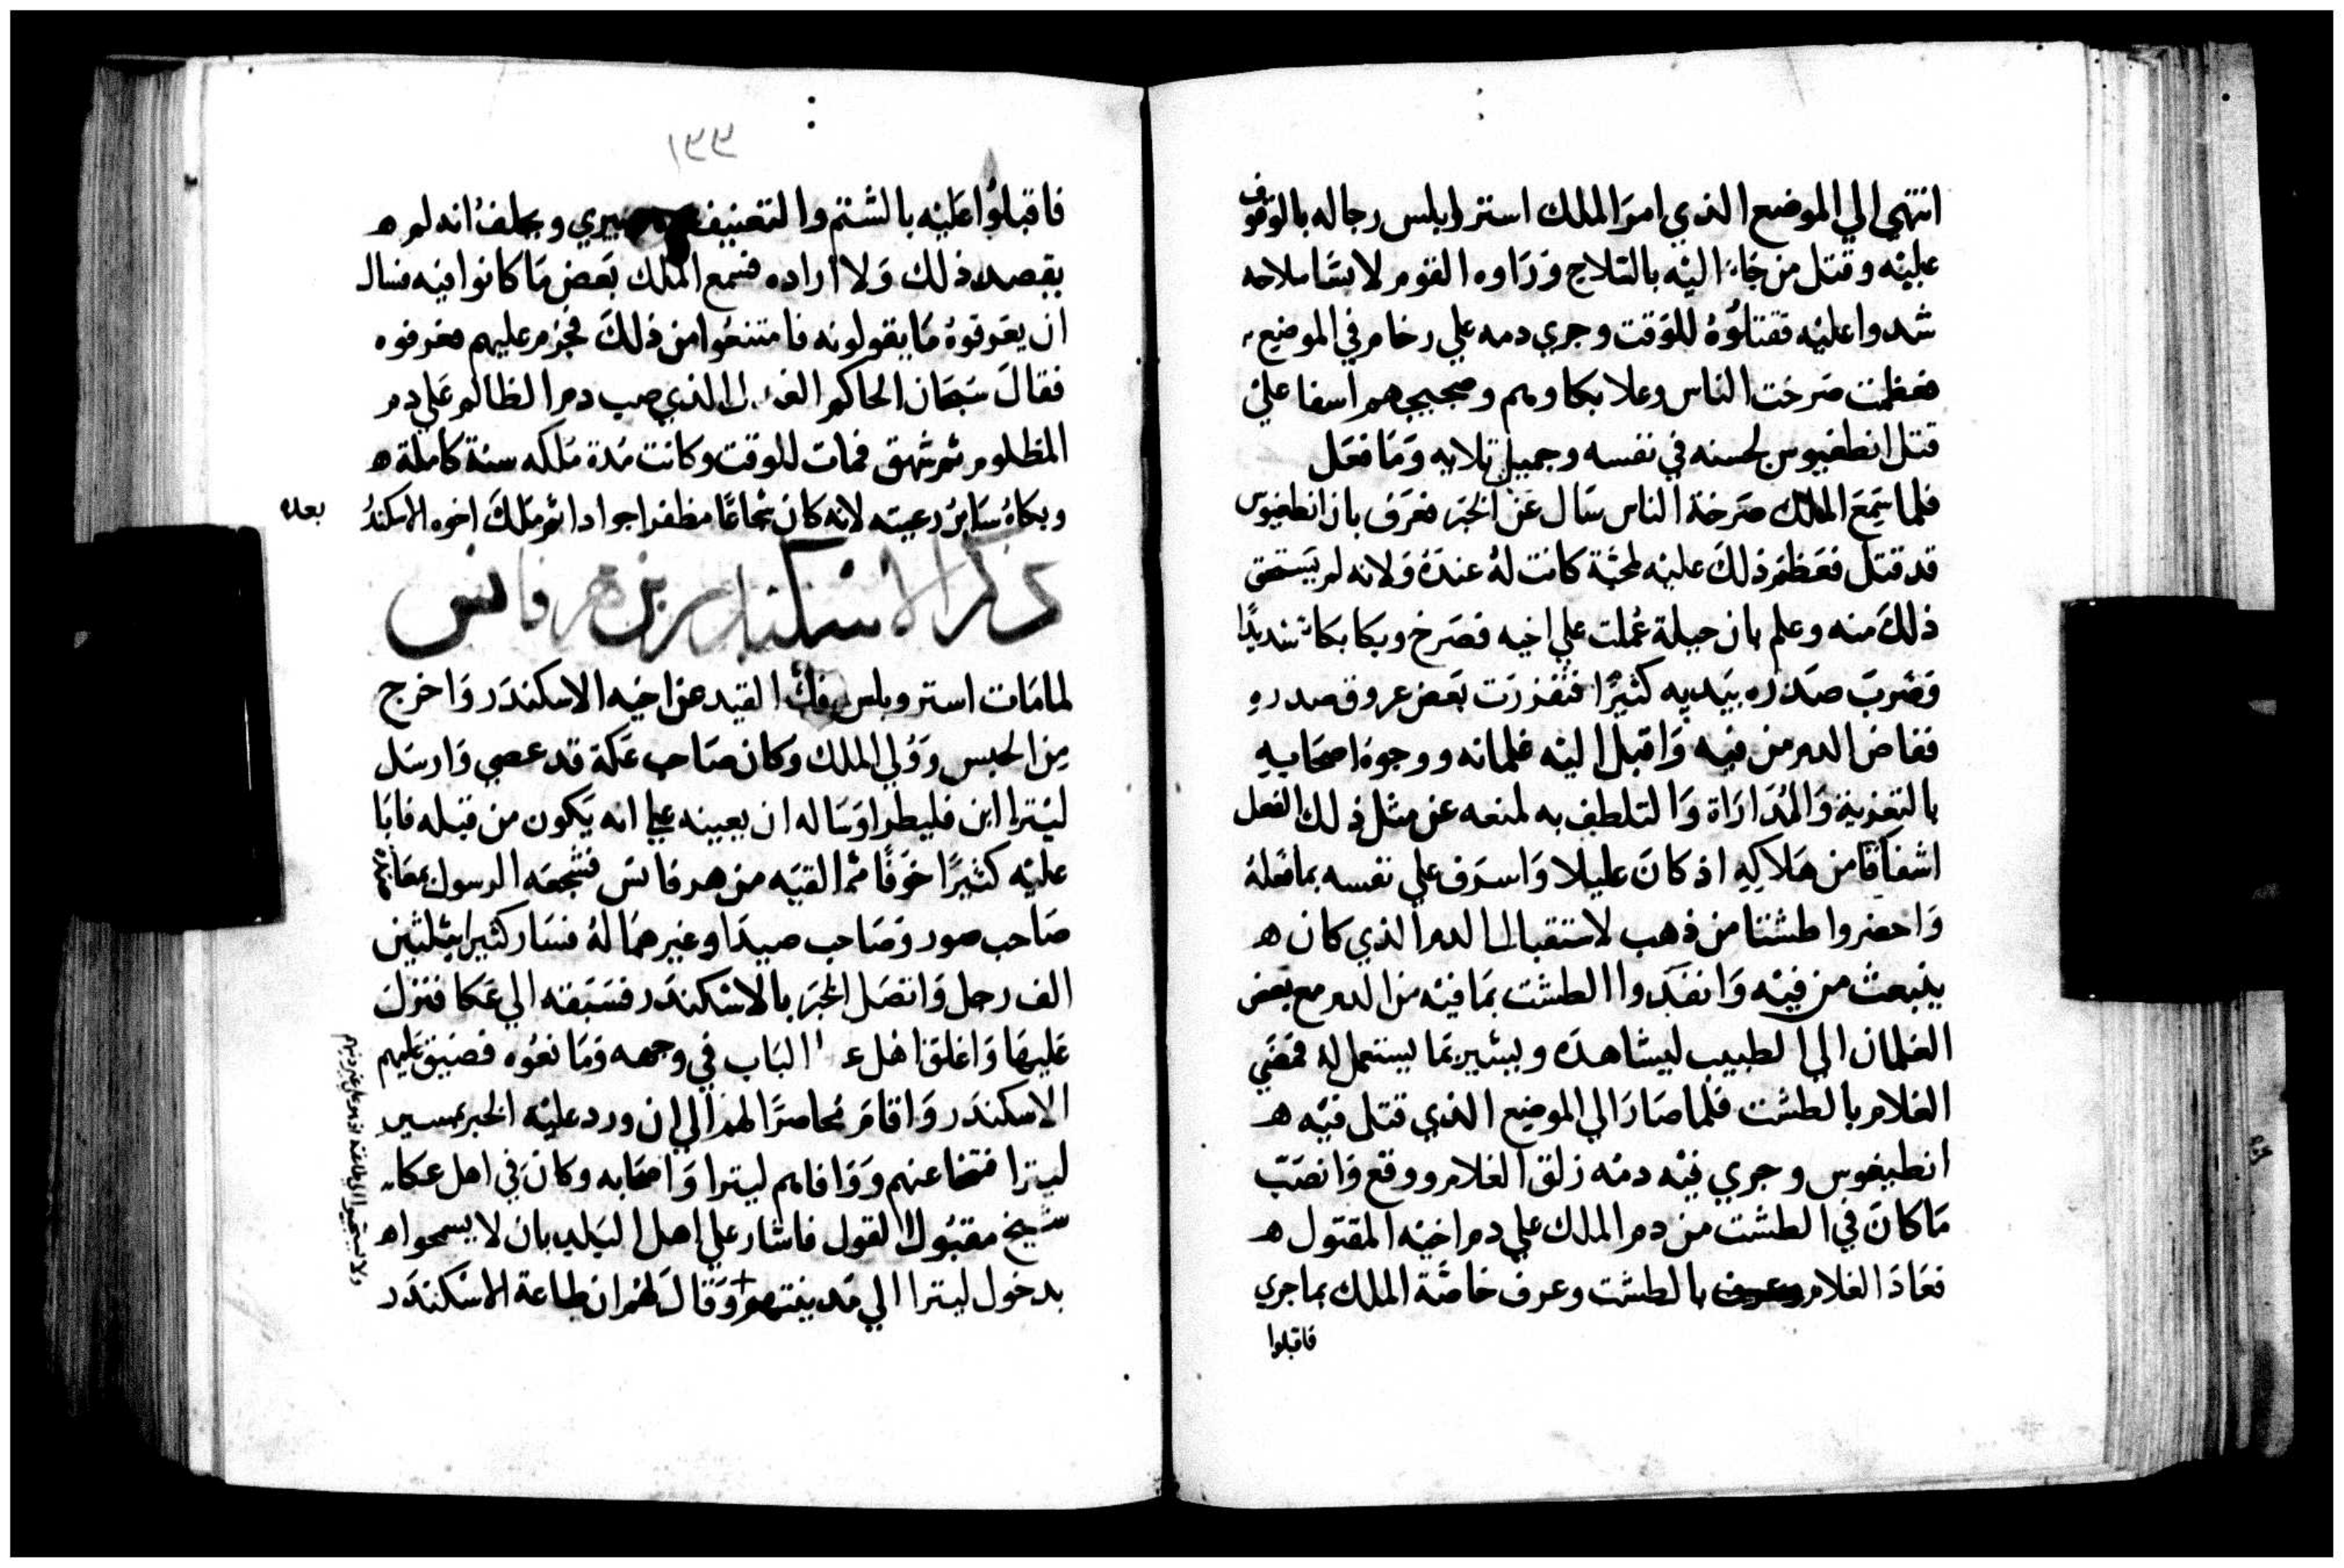 انتهي الي الموضع الذي امر الملك استرابلس رجاله بالوقوف
عليه وقتل من جاء اليه بالسلاح وراوه القوم لابسا سلاحه
شدوا عليه فقتلوه للوقت وجري دمه علي رخام في الموضع
فعظمت صرخت الناس وعلا بكاوهم وضجيجهم اسفا علي
قتل انطغيوس لحسنه في نفسه وجميل بلايه وما فعل
فلما سمع الملك صرخة الناس سال عن الخبر فعرف بان انطغيوس
قد قتل فعظم ذلك عليه لمحبة كانت له عنده ولانه لم يستحق
ذلك منه وعلم بان حيلة عملت علي اخيه فصرخ وبكا بكاء شديدًا
وضرب صدره بيديه كثيرًا فتفزرت بعض عروق صدره
ففاض الدم من فيه واقبل اليه غلمانه ووجوه اصحابه
بالتعزية والمداراة والتلطف به لمنعه عن مثل ذلك الفعل
اشفاقا من هلاكه اذ كان عليلا واسرف علي نفسه بما فعله
واحضروا طشتا من ذهب لاستقبال الدم الذي كان ه
ينبعث من فيه وانفدوا الطشت بما فيه من الدم مع بعض
الغلمان الي الطبيب ليشاهده ويشير بما يستعمل له فمضي
الغلام بالطشت فلما صار الي الموضع الذي قتل فيه ه
انطيغوس وجري فيه دمه زلق الغلام ووقع وانصب
ما كان في الطشت من دم الملك علي دم اخيه المقتول ه
فعاد الغلام بالطشت وعرف خاصة الملك بما جري
فاقبلوا
١٩٩
فاقبلوا عليه بالشتم والتعنيف وهو يبري ويحلف انه لم ه
يقصد ذلك ولا اراده فسمع الملك بعض ما كانوا فيه فسال
ان يعرفوه ما يقولونه فامتنعوا من ذلك فجزم عليهم فعرفوه
فقال سبحان الحاكم الذي صب دم الظالم علي دم
المظلوم ثم شهق فمات للوقت وكانت مدة ملكه سنة كاملة ه
وبكاه ساير رعيته لانه كان شجاعًا مظفرا جوادا ثم ملك اخوه الاسكندر
بعده
ذكر الاسكندر بن هرقانس
لما مات استروبلس فك القيد عن اخيه الاسكندر واخرج
من الحبس وولي الملك وكان صاحب عكة قد عصي وارسل
ليترا ابن فليطرا وساله ان يعينه علي انه يكون من قبله فابا
عليه كثيرًا خوفًا مما لقيه من هرقانس فشجعه الرسول بمعاضدة
صاحب صور وصاحب صيدا وغيرهما له فسار كثيرا بثلثين
الف رجل واتصل الخبر بالاسكندر فسبقه الي عكا فنزل
عليها واغلق اهل الباب في وجهه ومانعوه فضيق عليهم
الاسكندر واقام محاصرًا لهم الي ان ورد عليه الخبر بمسير
ليترا فتنحا عنهم ووافاهم ليترا واصحابه وكان في اهل عكا
شيخ مقبول القول فاشار علي اهل البلد بان لا يسمحوا ه
بدخول ليترا الي مدينتهم + وقال لهم ان طاعة الاسكندر